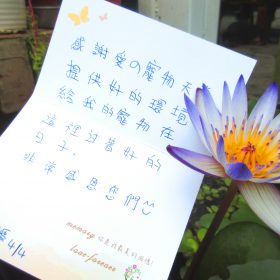 感謝愛の寵物天
提供好的環境
給我的寵物在
這裡過著好的
日子.
非常感恩您們
memory
love forever
4/4